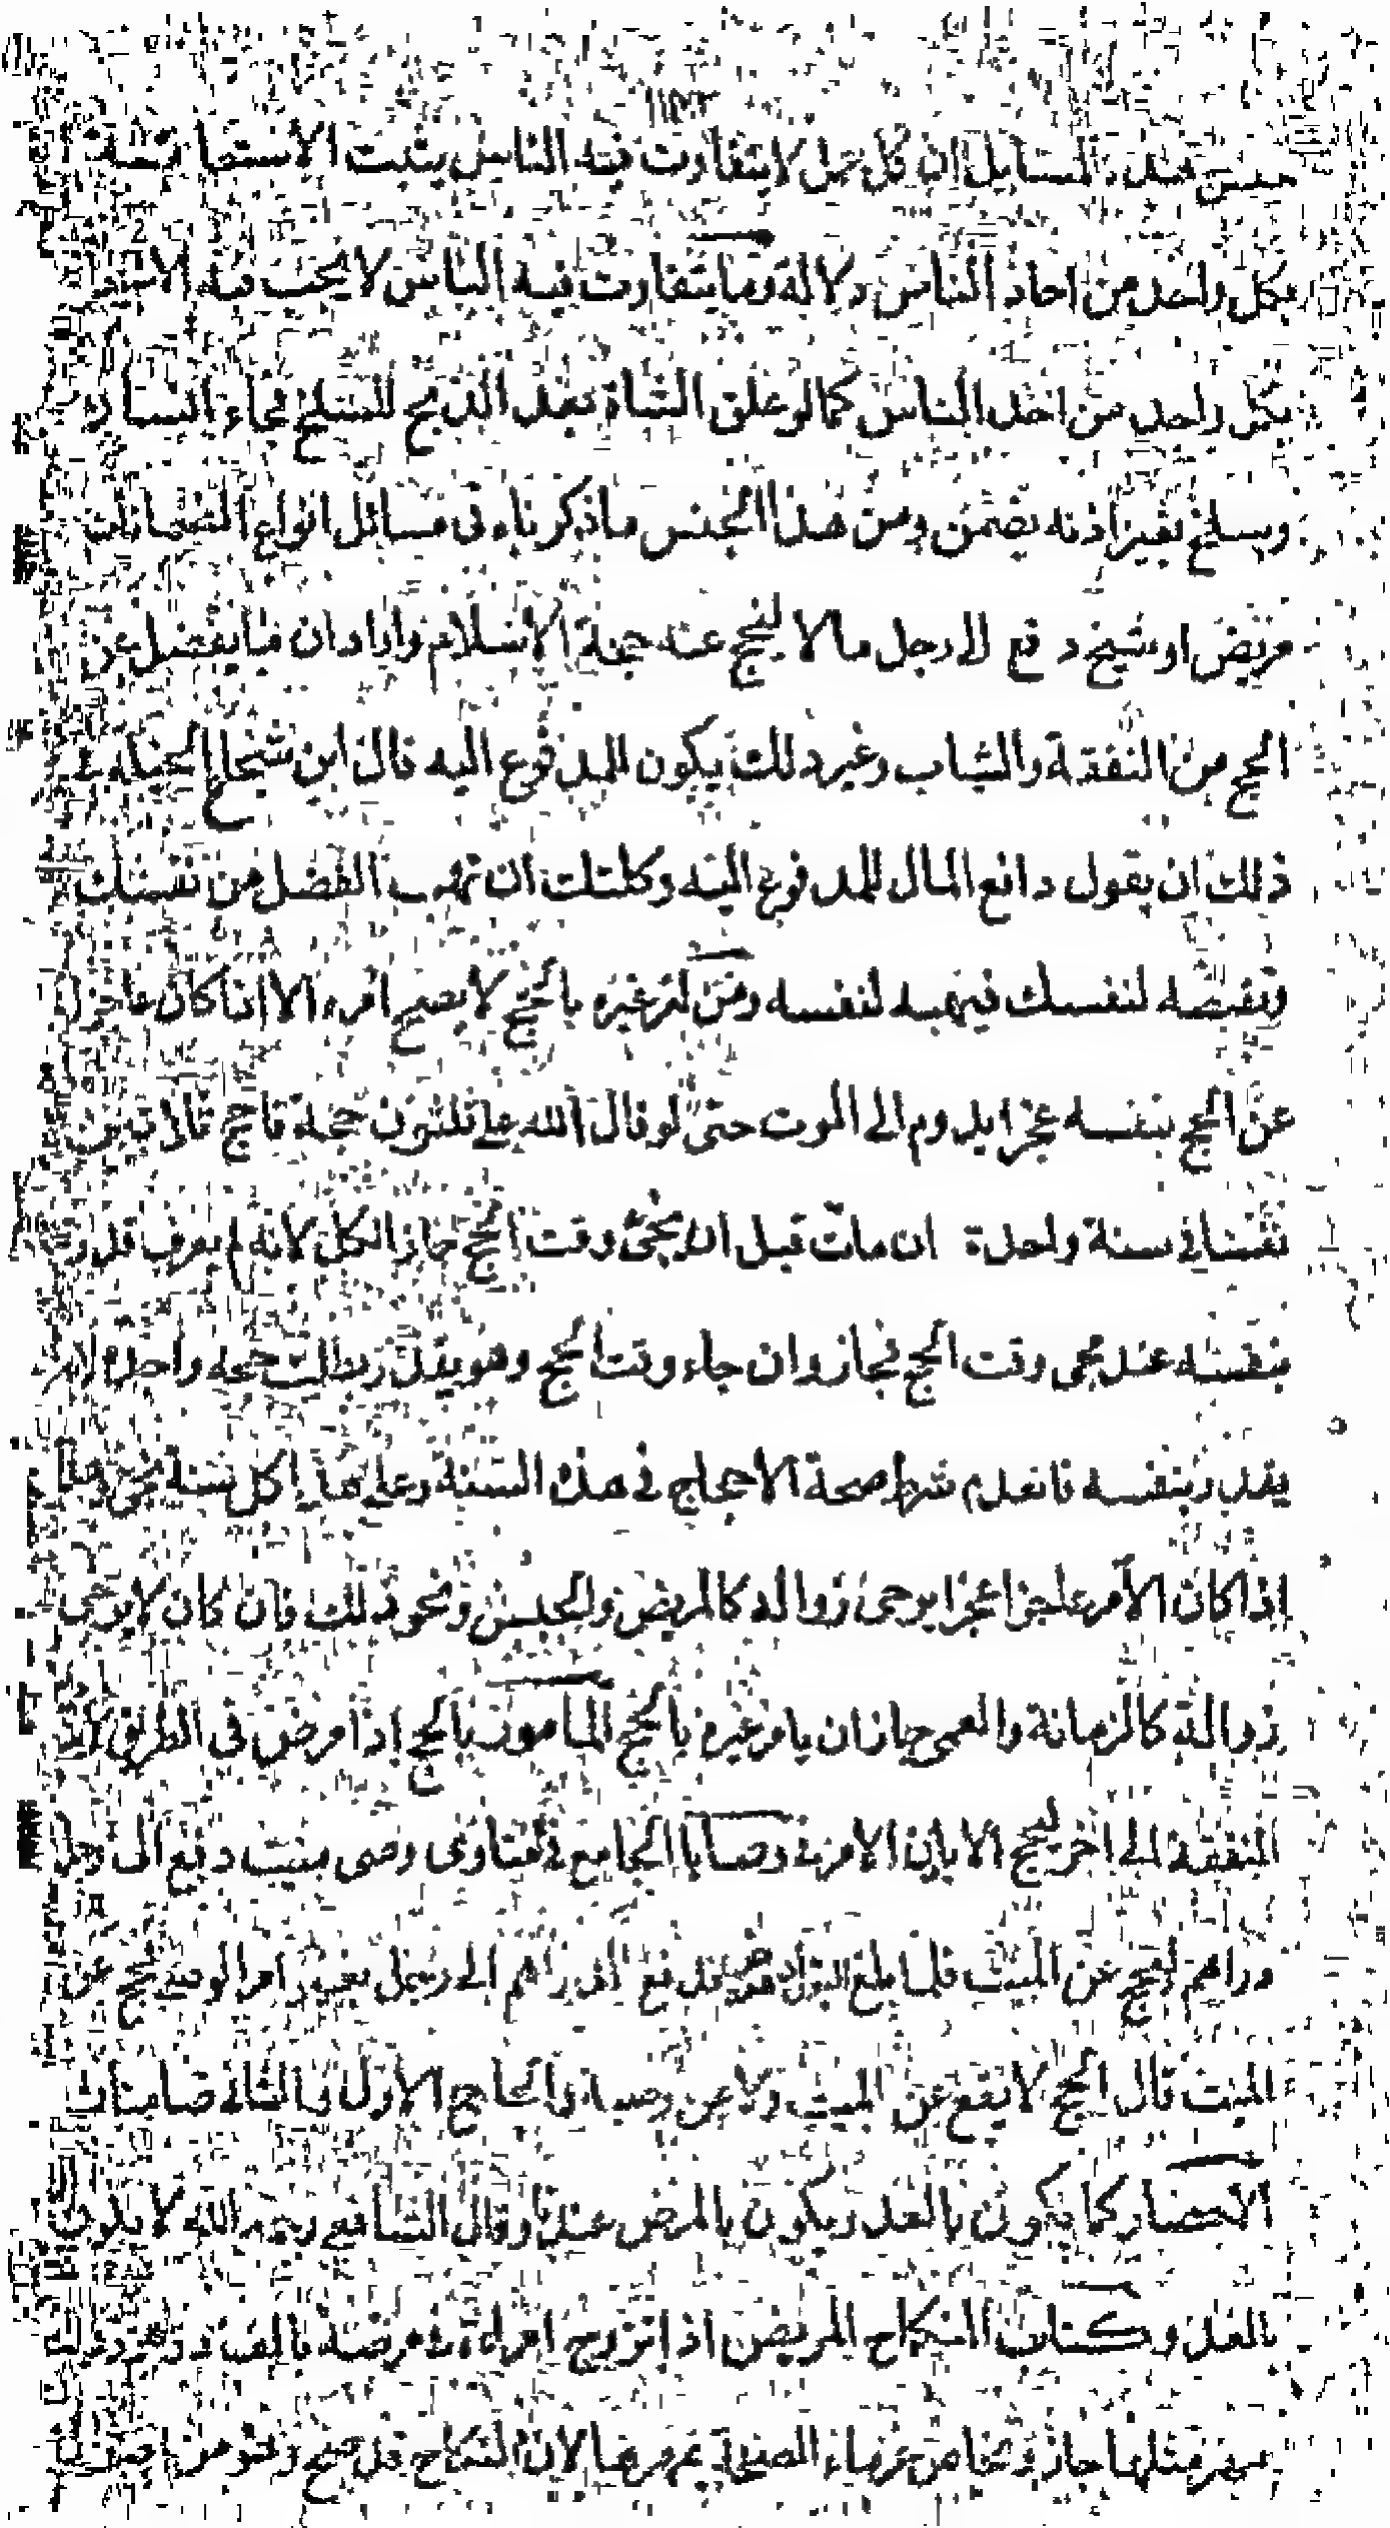 جنس هذه المسايل ان كل عمل لا يتفاوت فيه الناس يثبت الاستعانة
بكل واحد من احاد الناس دلالة وما يتفاوت فيه الناس لا يجب فيه
بكل واحد من احد الناس كما لو علق الشاة بعد الذبح للسلخ فجاء انسان
وسلخ بغير اذنه يضمن ومن هذا الجنس ما ذكرناه في مسائل انواع الضمانات
مريض او شيخ دفع الى رجل مالا ليحج عنه حجة الاسلام واراد ان ما يفضل عن
الحج من النفقة والثياب وغير ذلك يكون للمدفوع اليه قال ابن شجاع الحيلة في
ذلك ان يقول دافع المال للمدفوع اليه وكلتك ان تهب الفضل من نفسك
وتقبضه لنفسك فيهبه لنفسه ومن امر غيره بالحج لا يصح امره الا اذا كان عاجزا
عن الحج بنفسه عجزا يدوم الى الموت حتى لو قال لله علي ثلثون حجة فاحج ثلاثين
نفسا في سنة واحدة ان مات قبل ان يجئ وقت الحج جاز الكل لانه لم يعرف قدرته
بنفسه عند مجى وقت الحج فجاز وان جاء وقت الحج وهو يقدر بطلت حجة واحدة لانه
يقدر بنفسه فانعدم شرط صحة الاحجاج في هذه السنة وعلى هذا كل سنة تجئ هذا
اذا كان الآمر عاجزا عجزا يرجى زواله كالمريض والحبس ونحو ذلك فان كان لا يرجى
زواله كالزمانة والعمى جاز ان يامر غيره بالحج المامور بالحج اذا مرض في الطريق
النفقة الى اخر ليحج الا باذن الامر في وصايا الجامع في الفتاوى وصى ميت دفع الى رجل
دراهم ليحج عن الميت فلما بلغ قد دفع الدراهم الى رجل بغير امر الوصي ليحج عن
الميت قال الحج لا يقع عن الميت ولا عن وصيه والحاج الاول والثاني ضامنان
الاحصار كما يكون بالعدو يكون بالمرض عندنا وقال الشافعي رحمه الله لا يكون
بالعدو كتاب النكاح المريض اذا تزوج امراة في مرضه بالف
مهر مثلها جاز وتحاص غرماء الصحة مهرها لان النكاح قد صح وهو من